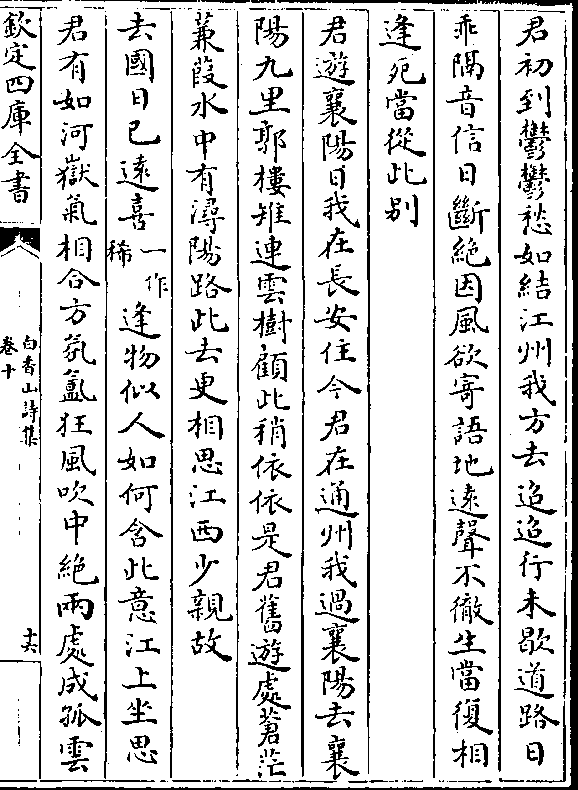 君初到鬱鬱愁如結江州我方去迢迢行未歇道路日
乖隔音信日斷絶因風欲寄語地遠聲不徹生當復相
逢死當從此别
君遊襄陽日我在長安住今君在通州我過襄陽去襄
陽九里郭樓雉連雲樹顧此稍依依是君舊遊處蒼茫
蒹葭水中有潯陽路此去更相思江西少親故
去國日已遠喜一作稀逢物似人如何含此意江上坐思
君有如河嶽氣相合方氛氳狂風吹中絶兩處成孤雲
欽定四庫全書
白香山詩集
卷十
十六